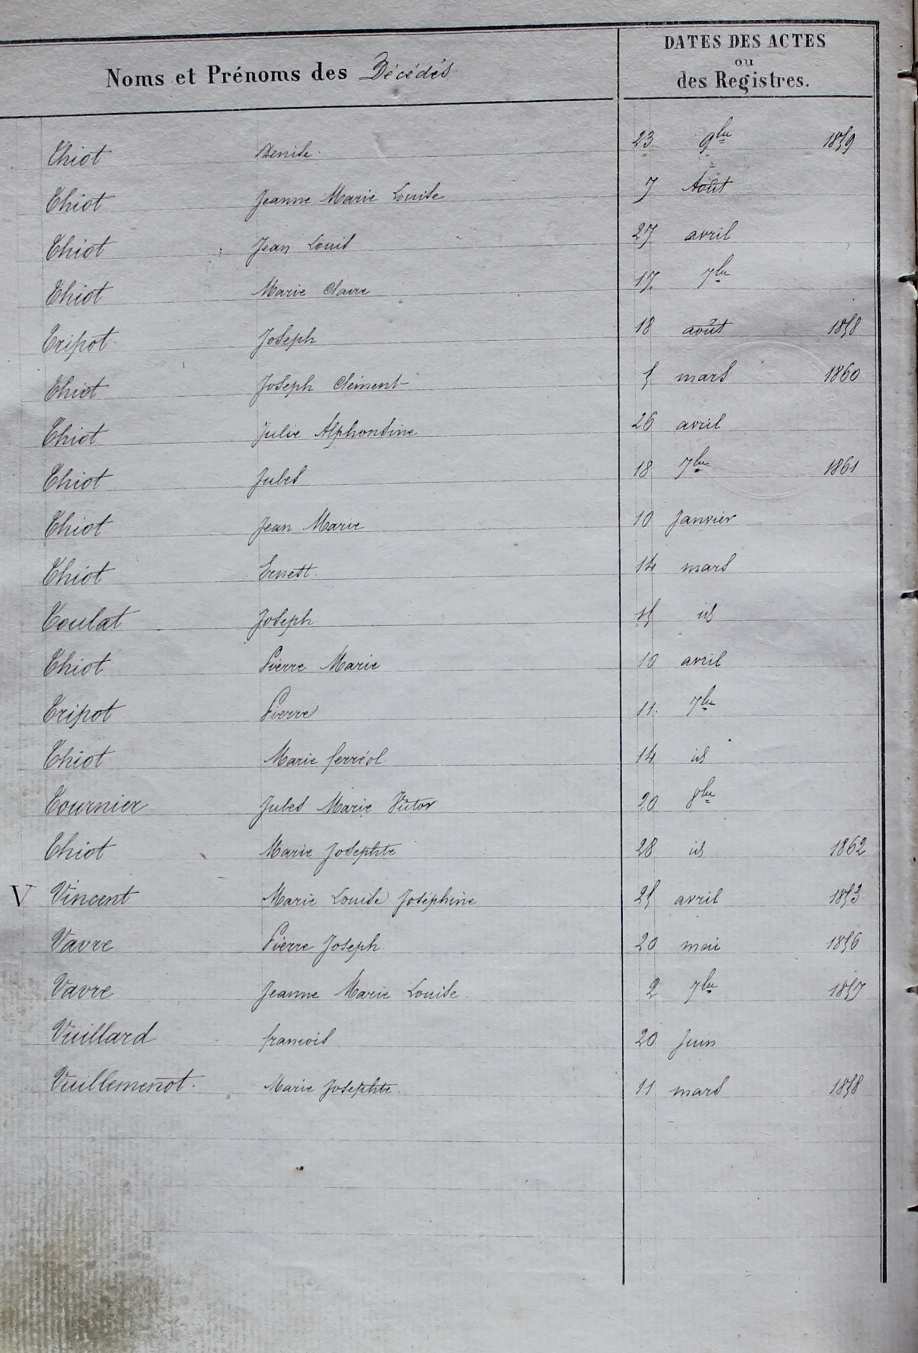 Noms et Prénoms des Décédés
DATES DES ACTES
ou
des Registres.
Thiot Denise 23 9bre 1859
Thiot Jeanne Marie Louise 7 Août
Thiot Jean Louis 27 avril
Thiot Marie Claire 17 7bre
Tripot Joseph 18 août 1858
Thiot Joseph Clément 5 mars 1860
Thiot Julie Alphonsine 26 avril
Thiot Jules 18 7bre 1861
Thiot Jean Marie 10 Janvier
Thiot Ernest 14 mars
Toulat Joseph 15 id
Thiot Pierre Marie 10 avril
Tripot Pierre 11 7bre
Thiot Marie ferréol 14 id
Tournier Jules Marie Victor 20 8bre
Thiot Marie Josephte 28 id 1862
V Vincent Marie Louise Joséphine 25 avril 1853
Vavre Pierre Joseph 20 mai 1856
Vavre Jeanne Marie Louise 2 7bre 1857
Vuillard francois 20 Juin
Vuillemenot Marie Josephte 11 mars 1858